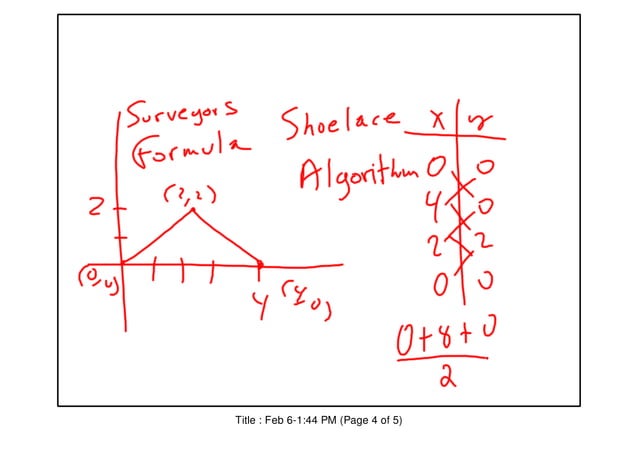 Surveyors
Formula
Shoelace
Algorithm
x y
0 0
4 0
2 2
0 0
0+8+0
2
2
(2,2)
(0,0)
4
(4,0)
Title : Feb 6-1:44 PM (Page 4 of 5)